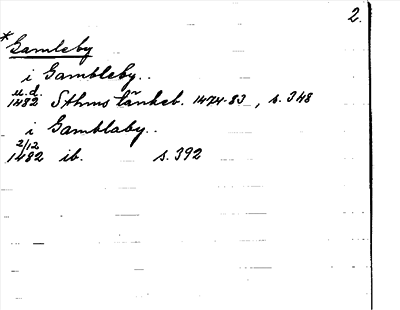 2.
*Gamleby
i Gambleby..
u.d.
1482 Sthms tänkeb. 1474-83, s. 348
i Gamblaby..
2/12
1482 ib. s. 392